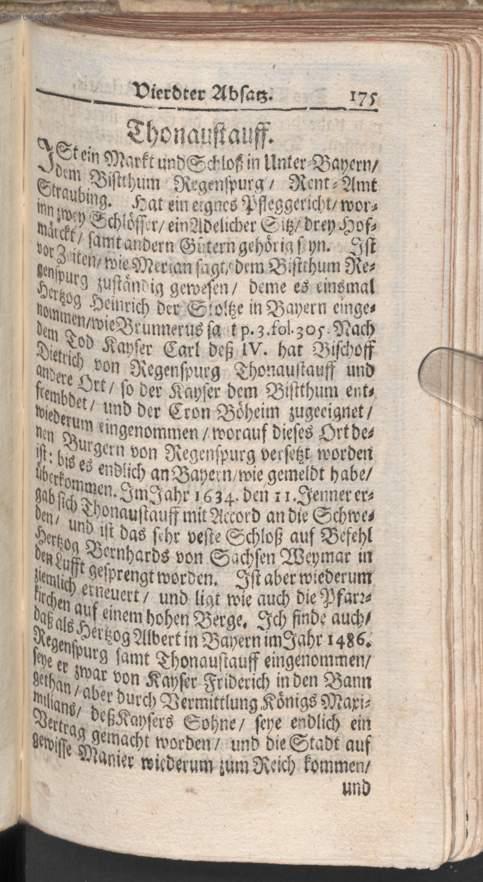 Vierdter Absatz. 175
Thonaustauff.
ISt ein Marckt und Schloß in Unter-Bayern/
dem Bistthum Regenspurg/ Rent-Amt
Straubing. Hat ein eignes Pfleggericht/ wor-
inn zwey Schlösser/ ein Adelicher Sitz/ drey Hof-
märckt/ samt andern Gütern gehörig seyn. Ist
vor Zeiten/ wie Merian sagt/ dem Bistthum Re-
genspurg zuständig gewesen/ deme es einsmal
Hertzog Heinrich der Stoltze in Bayern einge-
nommen/ wie Brunnerus sagt p. 3. fol. 305. Nach
dem Tod Kayser Carl deß IV. hat Bischoff
Dietrich von Regenspurg Thonaustauff und
andere Ort/ so der Kayser dem Bistthum ent-
frembdet/ und der Cron Böheim zugeeignet/
wiederum eingenommen/ worauf dieses Ort de-
nen Burgern von Regenspurg versetzt worden
ist: bis es endlich an Bayern/ wie gemeldt habe/
überkommen. Im Jahr 1634. den 11. Jenner er-
gab sich Thonaustauff mit Accord an die Schwe-
den/ und ist das sehr veste Schloß auf Befehl
Hertzog Bernhards von Sachsen Weymar in
den Lufft gesprengt worden. Ist aber wiederum
ziemlich erneuert/ und ligt wie auch die Pfarr-
kirchen auf einem hohen Berge. Ich finde auch/
daß als Hertzog Albert in Bayern im Jahr 1486.
Regenspurg samt Thonaustauff eingenommen/
seye er zwar von Kayser Friderich in den Bann
gethan/ aber durch Vermittlung Königs Maxi-
milians/ deß Kaysers Sohne/ seye endlich ein
Vertrag gemacht worden/ und die Stadt auf
gewisse Manier wiederum zum Reich kommen/
und